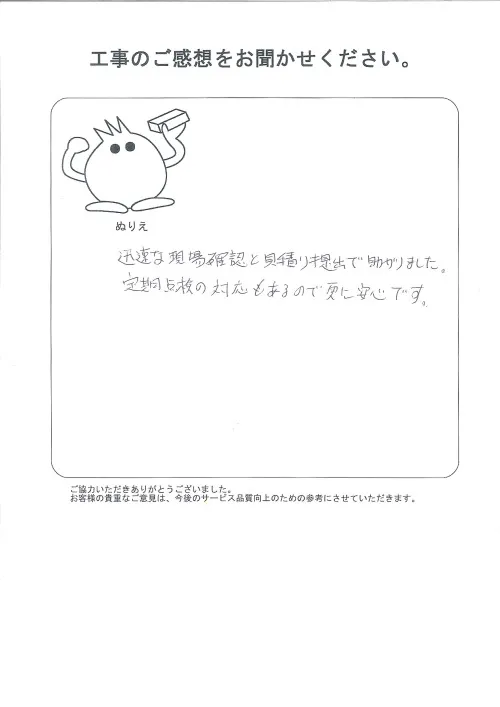 工事のご感想をお聞かせください。
ぬりえ
迅速な現場確認と見積り提出で助かりました。
定期点検の対応もあるので更に安心です。
ご協力いただきありがとうございました。
お客様の貴重なご意見は、今後のサービス品質向上のための参考にさせていただきます。